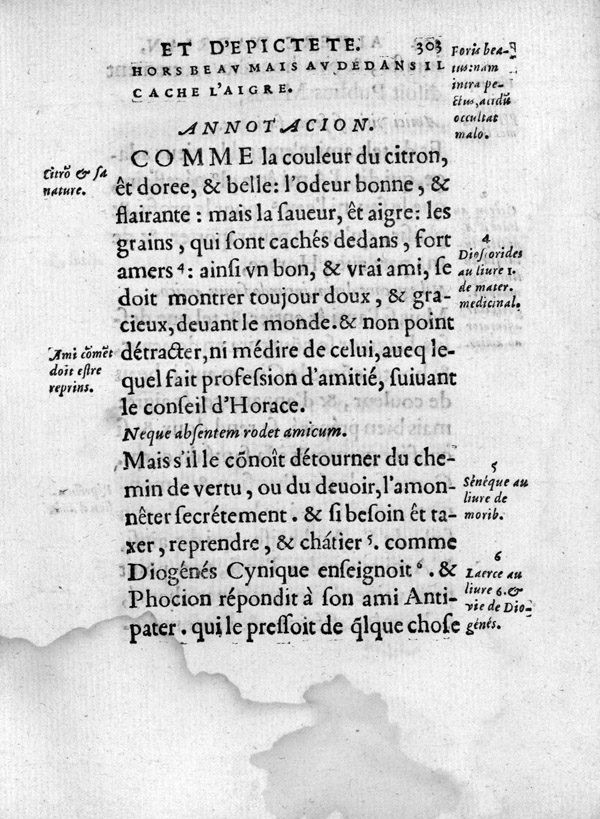 ET D'EPICTETE. 303
HORS BEAV MAIS AV DEDANS IL
CACHE L'AIGRE.
Foris bea-
tus: nam
intra pe-
ctus, acidũ
occultat
malo.
ANNOTACION.
COMME la couleur du citron,
êt doree, & belle: l'odeur bonne, &
flairante : mais la saueur, êt aigre: les
grains, qui sont cachés dedans, fort
amers 4 : ainsi vn bon, & vrai ami, se
doit montrer toujour doux, & gra-
cieux, deuant le monde. & non point
détracter, ni médire de celui, aueq le-
quel fait profession d'amitié, suiuant
le conseil d'Horace.
Neque absentem rodet amicum.
Mais s'il le cõnoît détourner du che-
min de vertu, ou du deuoir, l'amon-
nêter secrétement. & si besoin êt ta-
xer, reprendre, & châtier 5. comme
Diogénés Cynique enseignoit 6. &
Phocion répondit à son ami Anti-
pater. qui le pressoit de q̃lque chose
Citrõ & sa
nature.
Ami cõmẽt
doit estre
reprins.
4
Dioscorides
au liure 1.
de mater.
medicinal.
5
Sénéque au
liure de
morib.
6
Laerce au
liure 6. &
vie de Dio-
génés.